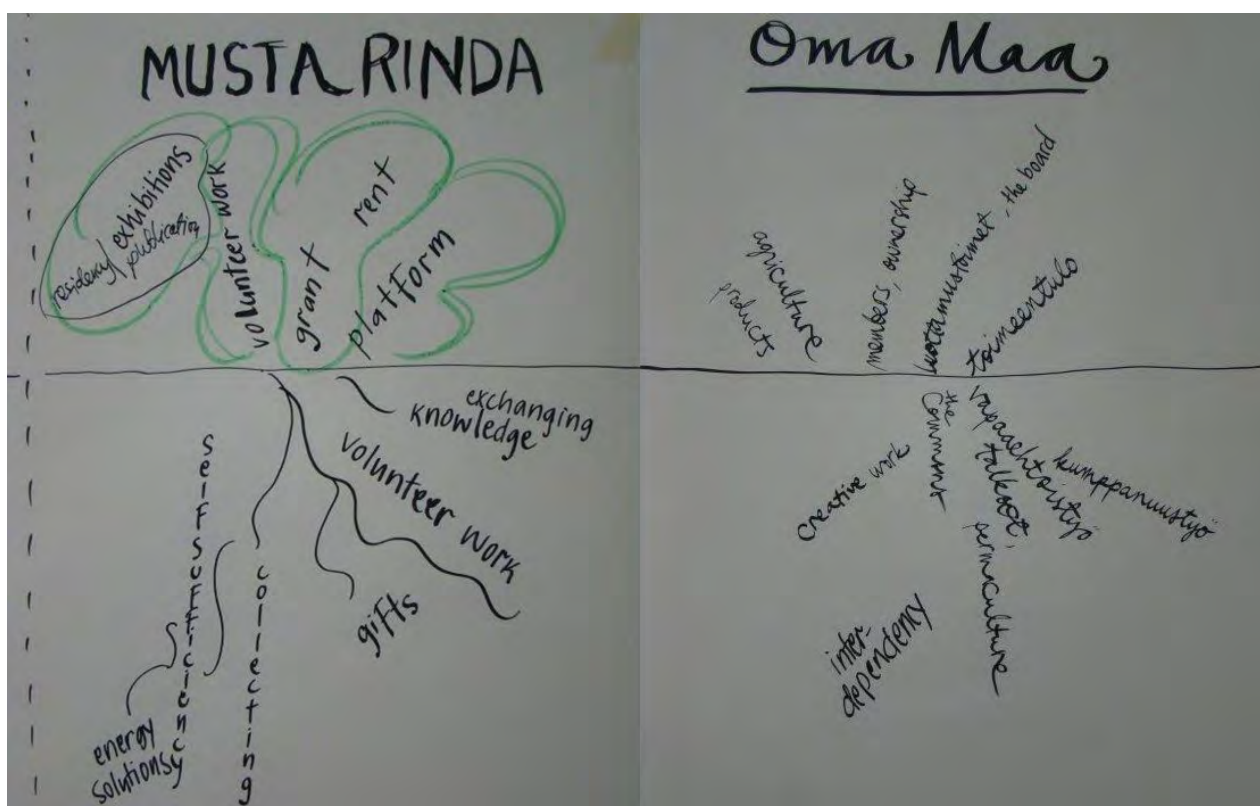 MUSTARINDA
residency
exhibitions
publication
volunteer work
grant
rent
platform
exchanging
knowledge
volunteer work
gifts
collecting
self sufficiency
energy
solutions
Oma Maa
agriculture
products
members, ownership
luottamustoimet, the board
toimeentulo
creative work
the
Commons
vapaaehtoistyö
talkoot,
permaculture
kumppanuustyö
inter-
dependency